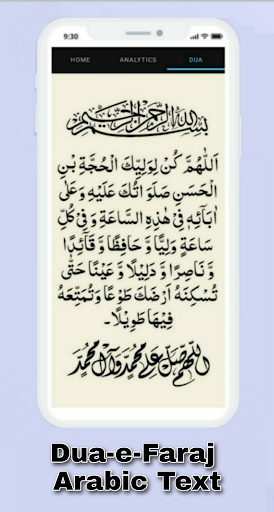 9:30
HOME ANALYTICS DUA
بسم الله الرحمن الرحيم
اَللّٰهُمَّ كُنْ لِوَلِيِّكَ الْحُجَّةِ بْنِ
الْحَسَنِ صَلَوَاتُكَ عَلَيْهِ وَعَلٰى
اٰبَآئِهٖ فِيْ هٰذِهِ السَّاعَةِ وَ فِيْ كُلِّ
سَاعَةٍ وَلِيًّا وَّ حَافِظًا وَّ قَآئِدًا
وَّ نَاصِرًا وَّ دَلِيْلًا وَّ عَيْنًا حَتّٰى
تُسْكِنَهٗ اَرْضَكَ طَوْعًا وَتُمَتِّعَهٗ
فِيْهَا طَوِيْلًا۔
اللهم صل على محمد وآل محمد
Dua-e-Faraj
Arabic Text